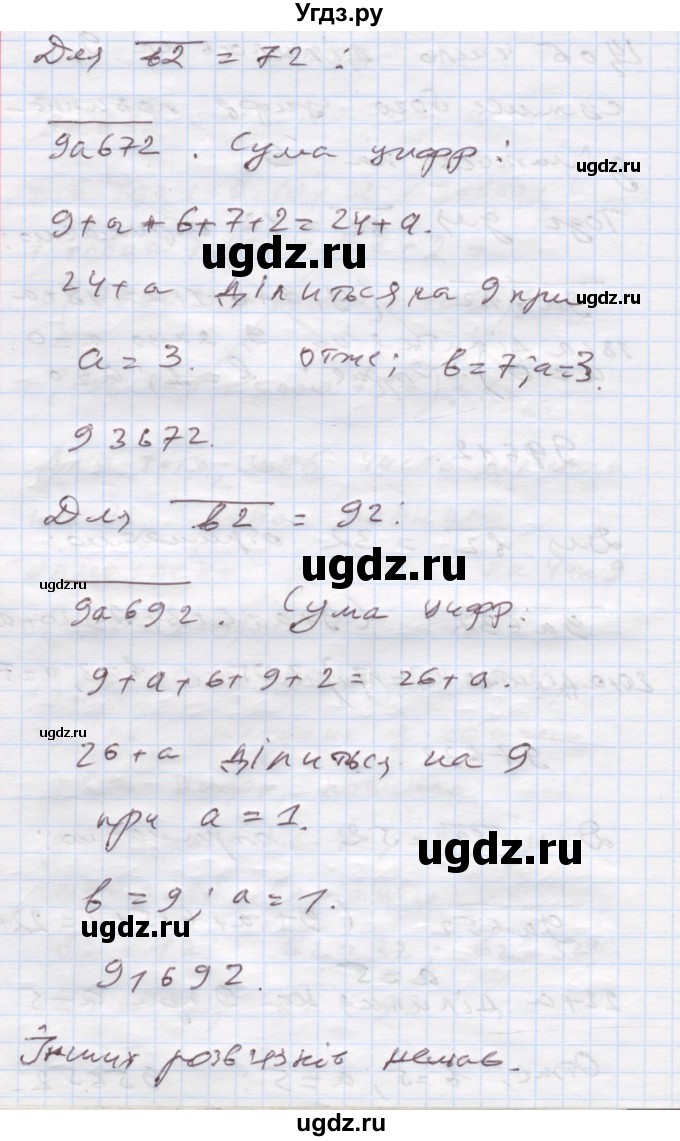 Угдз.ру
Для b2 = 72 :
9a672 . Сума цифр :
9+a+6+7+2=24+a.
24+a ділиться на 9 при
a = 3. отже; b=7; a=3.
93672.
Для b2 = 92:
9a692 . Сума цифр:
9+a+6+9+2= 26+a.
26+a ділиться на 9
при a = 1.
b = 9; a=1.
91692.
Інших розв'язків немає.
ugdz.ru
ugdz.ru
ugdz.ru
ugdz.ru
ugdz.ru
ugdz.ru
ugdz.ru
ugdz.ru
ugdz.ru
ugdz.ru
ugdz.ru
ugdz.ru